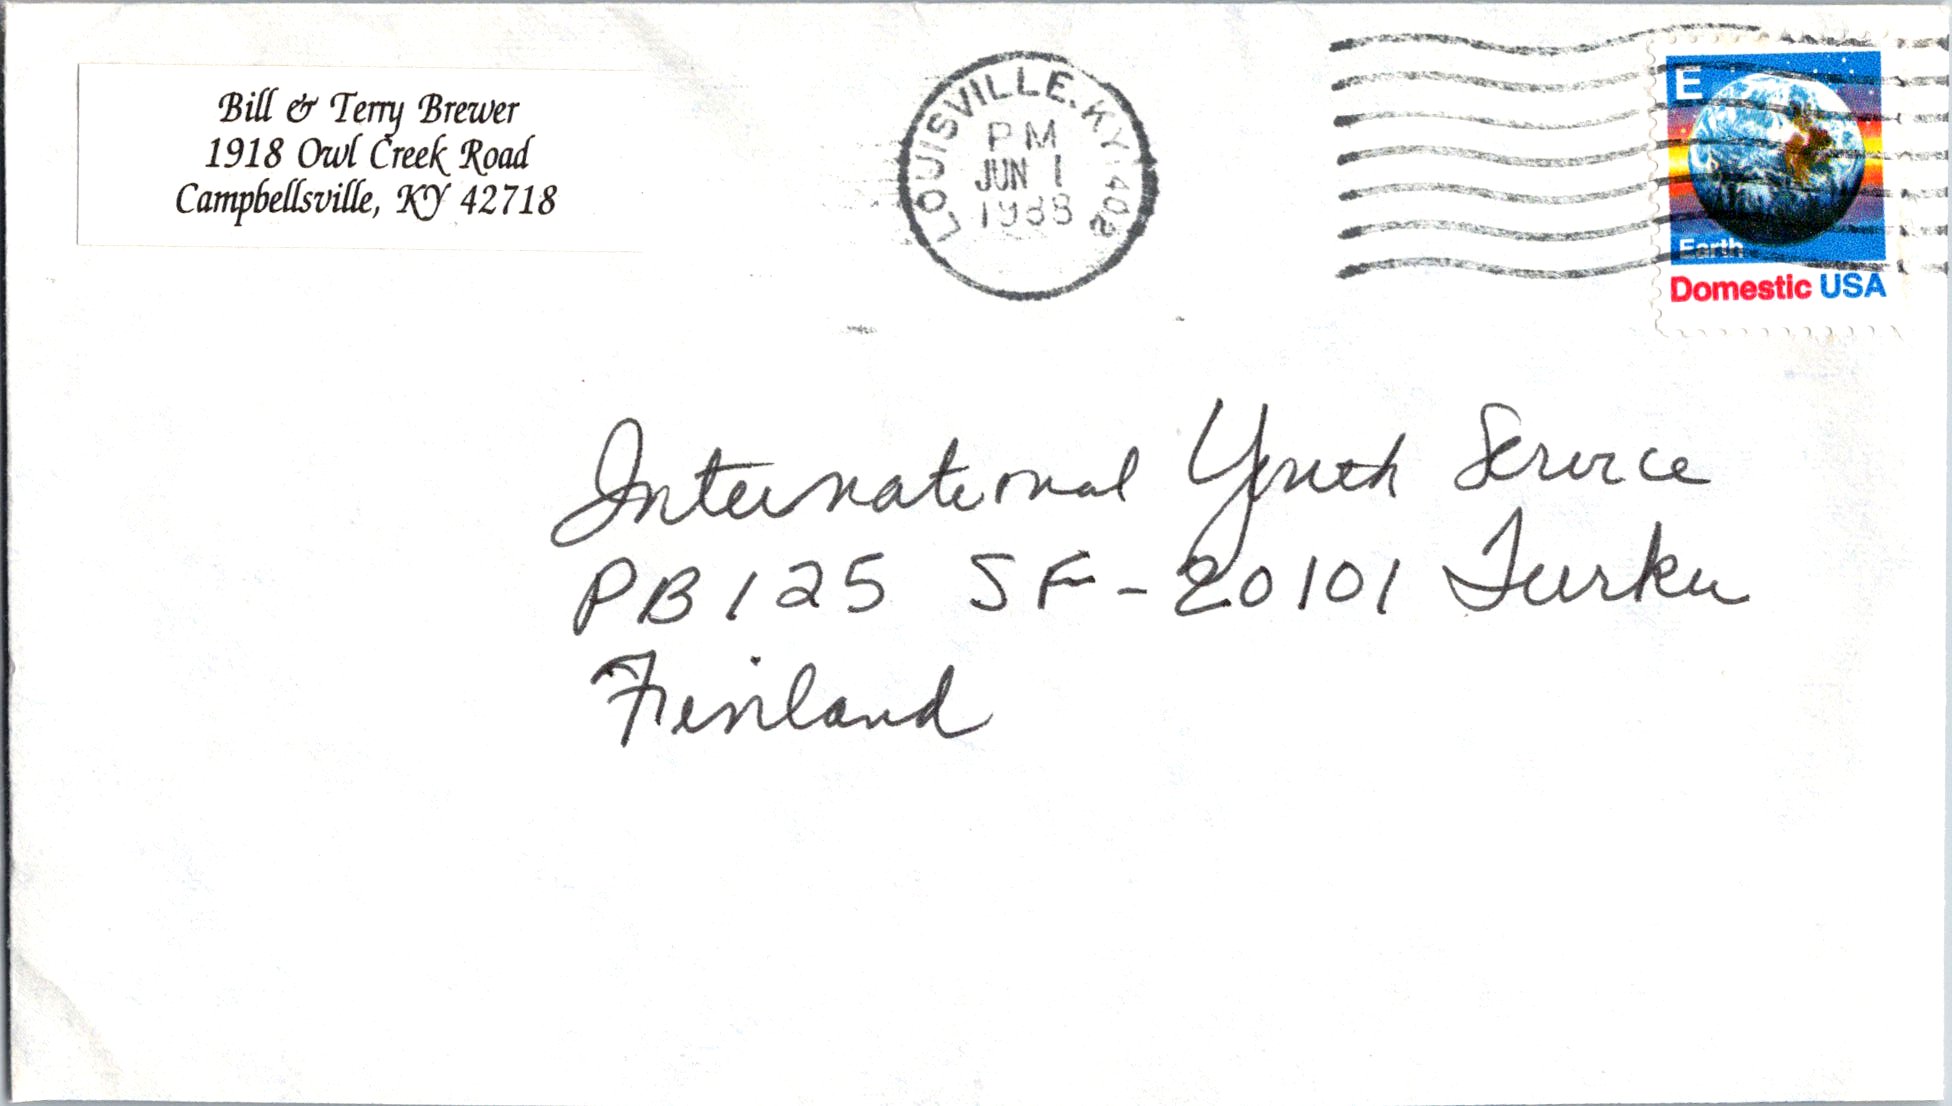 Bill & Terry Brewer
1918 Owl Creek Road
Campbellsville, KY 42718
LOUISVILLE, KY 402
PM
JUN 1
1988
E
Earth
Domestic USA
International Youth Service
PB 125 SF-20101 Turku
Finland